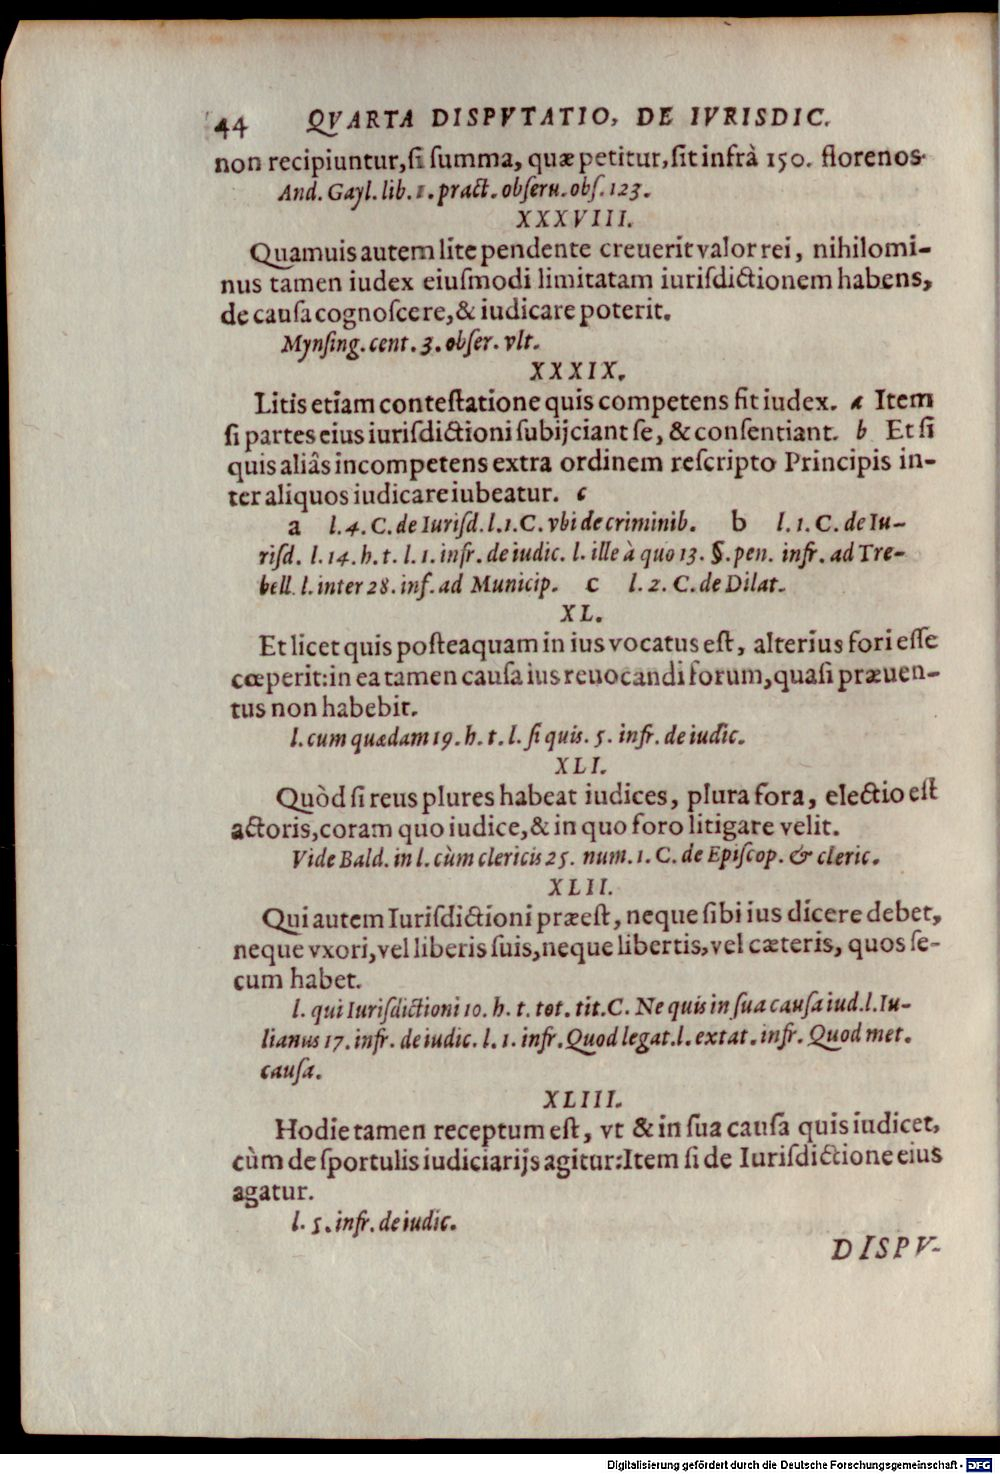 44 QVARTA DISPVTATIO, DE IVRISDIC.
non recipiuntur, ſi ſumma, quæ petitur, ſit infrà 150. florenos.
And. Gayl. lib. 1. pract. obſeru. obſ. 123.
XXXVIII.
Quamuis autem lite pendente creuerit valor rei, nihilomi-
nus tamen iudex eiuſmodi limitatam iurisdictionem habens,
de cauſa cognoſcere, & iudicare poterit.
Mynſing. cent. 3. obſer. vlt.
XXXIX.
Litis etiam conteſtatione quis competens fit iudex. a Item
ſi partes eius iuriſdictioni ſubijciant ſe, & conſentiant. b Et ſi
quis aliâs incompetens extra ordinem reſcripto Principis in-
ter aliquos iudicare iubeatur. c
a l. 4. C. de Iuriſd. l. 1. C. vbi de criminib. b l. 1. C. de Iu-
riſd. l. 14. h. t. l. 1. infr. de iudic. l. ille à quo 13. §. pen. infr. ad Tre-
bell. l. inter 28. inf. ad Municip. c l. 2. C. de Dilat.
XL.
Et licet quis poſteaquam in ius vocatus eſt, alterius fori eſſe
cœperit: in ea tamen cauſa ius reuocandi forum, quaſi præuen-
tus non habebit.
l. cum quædam 19. h. t. l. ſi quis. 5. infr. de iudic.
XLI.
Quòd ſi reus plures habeat iudices, plura fora, electio eſt
actoris, coram quo iudice, & in quo foro litigare velit.
Vide Bald. in l. cùm clericis 25. num. 1. C. de Epiſcop. & cleric.
XLII.
Qui autem Iuriſdictioni præeſt, neque ſibi ius dicere debet,
neque vxori, vel liberis ſuis, neque libertis, vel cæteris, quos ſe-
cum habet.
l. qui Iuriſdictioni 10. h. t. tot. tit. C. Ne quis in ſua cauſa iud. l. Iu-
lianus 17. infr. de iudic. l. 1. infr. Quod legat. l. extat. infr. Quod met.
cauſa.
XLIII.
Hodie tamen receptum eſt, vt & in ſua cauſa quis iudicet,
cùm de ſportulis iudiciarijs agitur: Item ſi de Iuriſdictione eius
agatur.
l. 5. infr. de iudic.
DISPV-
Digitalisierung gefördert durch die Deutsche Forschungsgemeinschaft - DFG